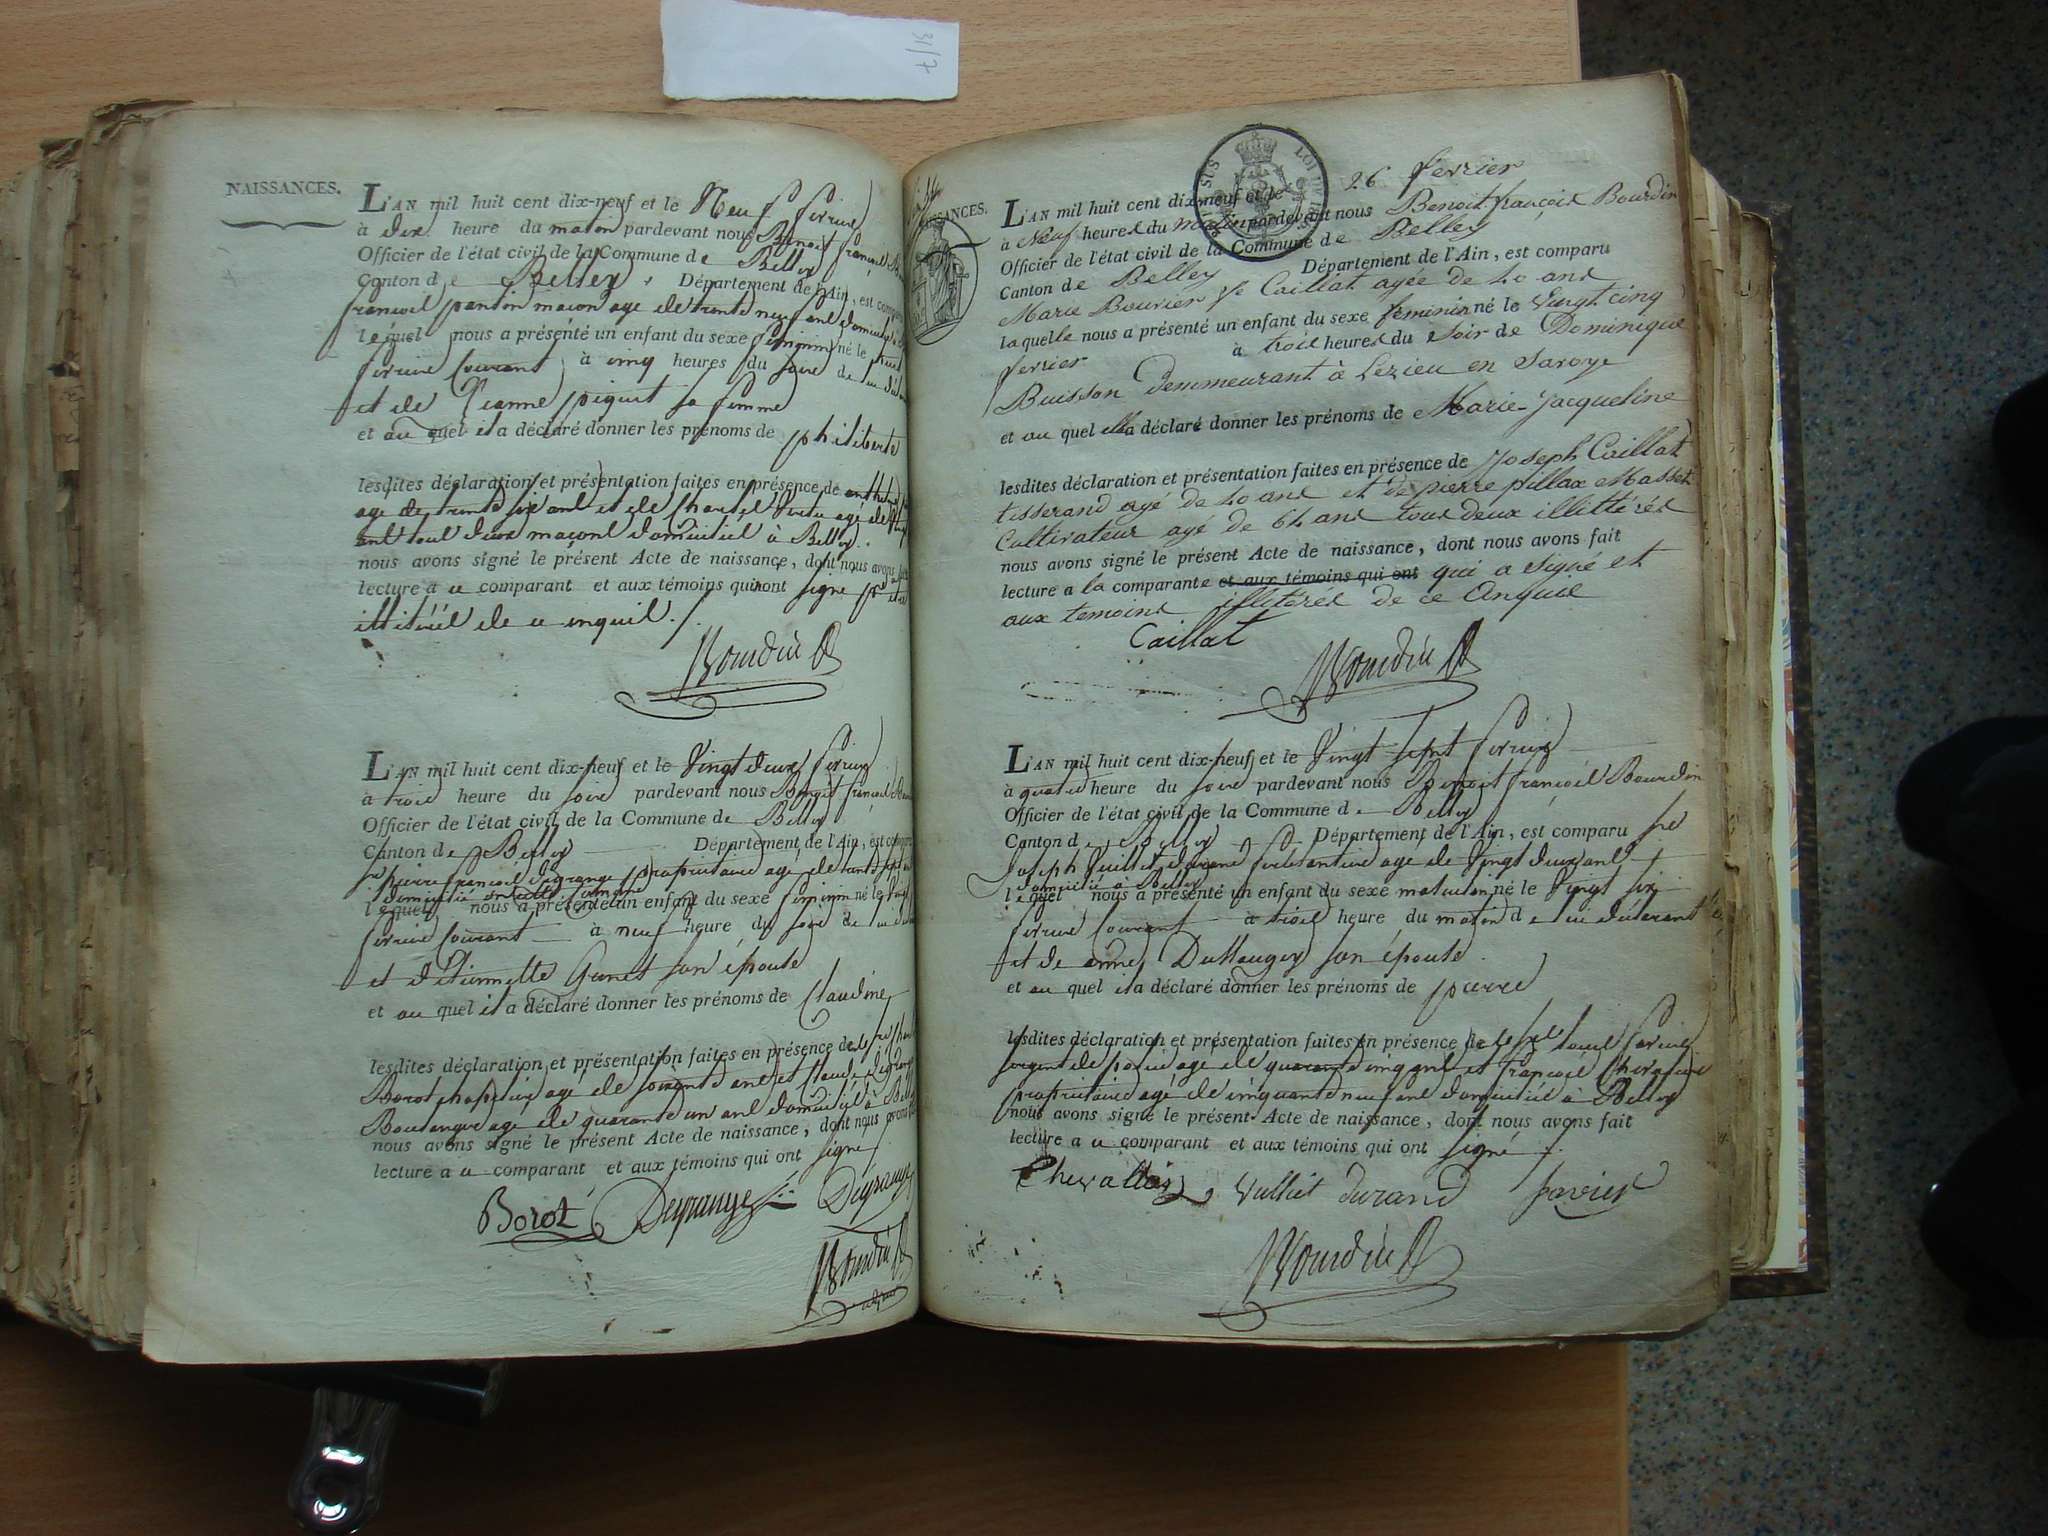 31/7
NAISSANCES.
L'AN mil huit cent dix-neuf et le Neuf fevrier
à dix heure du matin pardevant nous Benoit françois
Officier de l'état civil de la Commune de Belley
Canton de Belley, Département de l'Ain, est comparu
françois pantin macon age de trente neuf ans
lequel nous a présenté un enfant du sexe feminin né le huit
fevrier Courant à cinq heures du soir de lui
et de Jeanne piquet sa femme
et au quel il a déclaré donner les prénoms de philiberte
lesdites déclaration et présentation faites en présence de
age de trente six ans et de Charles age de
ans tous deux macons domiciliés à Belley.
nous avons signé le présent Acte de naissance, dont nous avons fait
lecture a ce comparant et aux témoins qui ont signé
illitérés de ce enquis./.
Bourdin
L'AN mil huit cent dix-neuf et le Vingt deux fevrier
à trois heure du soir pardevant nous Benoit françois
Officier de l'état civil de la Commune de Belley
Canton de Belley Département de l'Ain, est comparu
pierre francois degrange propriétaire agé de trente
domicilié en cette Commune
lequel nous a présenté un enfant du sexe feminin né le Vingt
fevrier Courant à neuf heure du soir de lui
et d'Etiennette son épouse
et au quel il a déclaré donner les prénoms de Claudine
lesdites déclaration et présentation faites en présence de
Borot chapelier agé de soixante ans et Claude degrange
Boulanger age de quarante un ans domiciliés à Belley
nous avons signé le présent Acte de naissance, dont nous avons
lecture a ce comparant et aux témoins qui ont signé
Borot Degrange Degrange
Bourdin
NAISSANCES.
LOUIS
26 fevrier
L'AN mil huit cent dix-neuf et le
à Neuf heures du matin pardevant nous Benoit françois Bourdin
Officier de l'état civil de la Commune de Belley
Canton de Belley Département de l'Ain, est comparu
Marie Bouvier Ve Caillat agée de 40 ans
laquelle nous a présenté un enfant du sexe feminin né le Vingt cinq
fevrier à trois heures du soir de Dominique
Buisson demmeurant à Lezieu en Savoye
et au quel elle a déclaré donner les prénoms de Marie-Jacqueline
lesdites déclaration et présentation faites en présence de Joseph Caillat
tisserand agé de 40 ans et de pierre pillax Masset
Cultivateur agé de 64 ans tous deux illittérés
nous avons signé le présent Acte de naissance, dont nous avons fait
lecture a la comparante et aux témoins qui ont qui a signé et
aux temoins illitérés de ce Enquis
Caillat
Bourdin
L'AN mil huit cent dix-neuf et le Vingt sept fevrier
à quatre heure du soir pardevant nous Benoit françois Bourdin
Officier de l'état civil de la Commune de Belley
Canton de Belley Département de l'Ain, est comparu
Joseph Vulliet durand age de Vingt deux ans
domicilié à Belley
lequel nous a présenté un enfant du sexe masculin né le Vingt six
fevrier Courant à trois heure du matin de lui déclarant
et de anne son épouse.
et au quel il a déclaré donner les prénoms de pierre
lesdites déclaration et présentation faites en présence de Louis favier
sergent de police age de quarante cinq ans et françois Chevalier
propriétaire agé de cinquante neuf ans domiciliés à Belley
nous avons signé le présent Acte de naissance, dont nous avons fait
lecture a ce comparant et aux témoins qui ont signé./.
Chevallier Vulliet durand favier
Bourdin